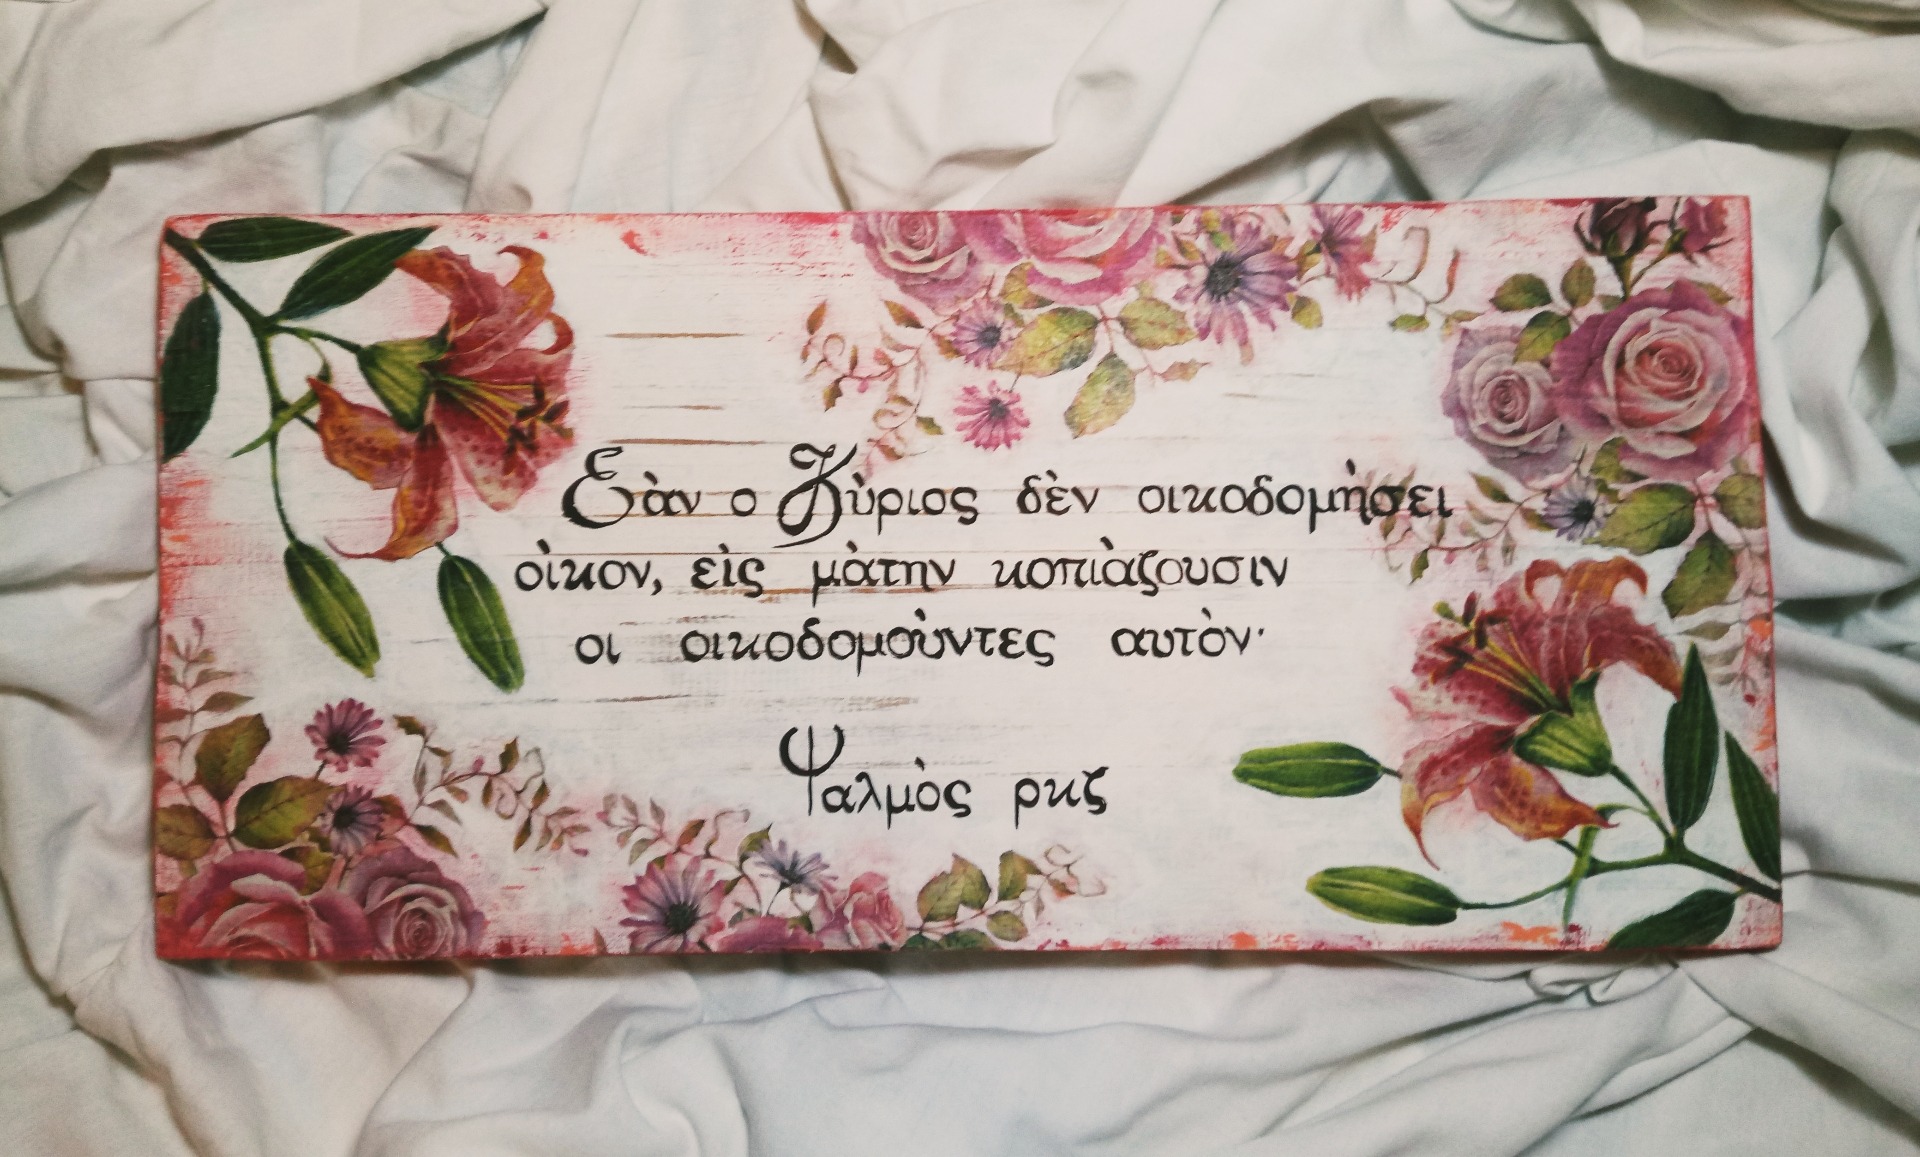 Εὰν ο Κὺριος δὲν οικοδομὴσει
οὶκον, εὶς μὰτην κοπιὰζουσιν
οι οικοδομοὺντες αυτὸν·
Ψαλμὸς ρκζ